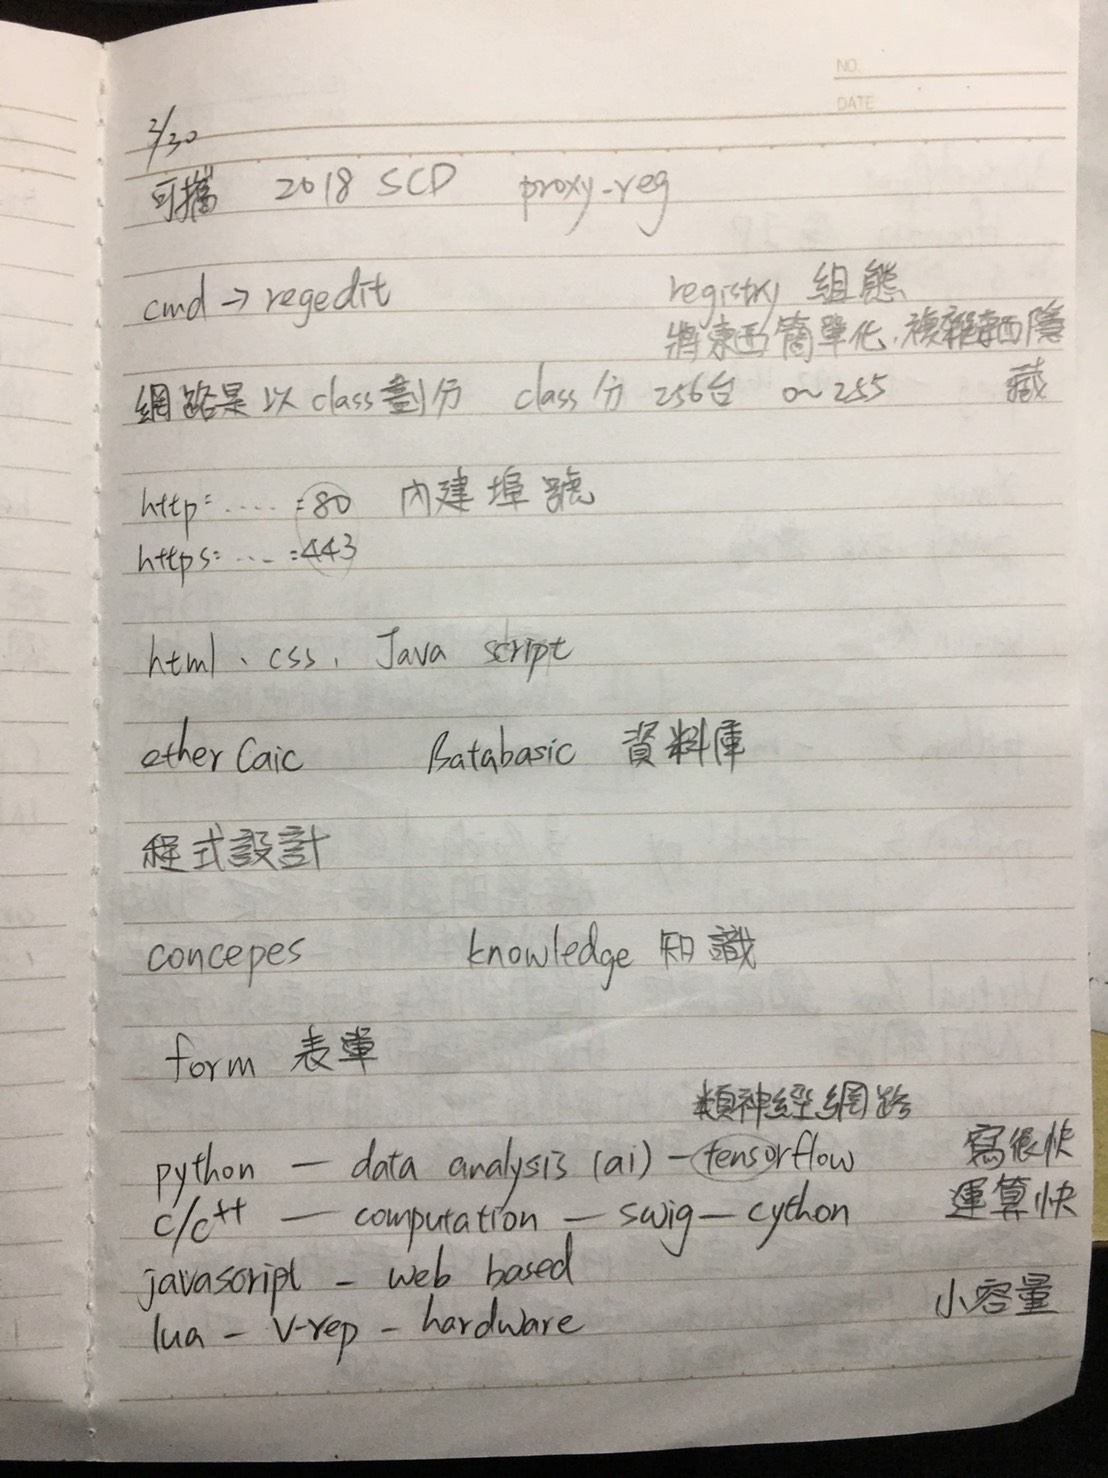 NO.
DATE
3/30
可攜 2018 SCD proxy-reg
cmd → regedit registry 組態
將東西簡單化,複雜東西隱藏
網路是以 class 劃分 class 分 256台 0~255
http: ..... :80 內建埠號
https: ... :443
html、css、Java script
ether Caic Batabasic 資料庫
程式設計
concepes knowledge 知識
form 表單
類神經網路
python — data analysis (ai) — tensorflow 寫很快
c/c++ — computation — swig — cython 運算快
javascript - web based
lua - v-rep - hardware 小容量